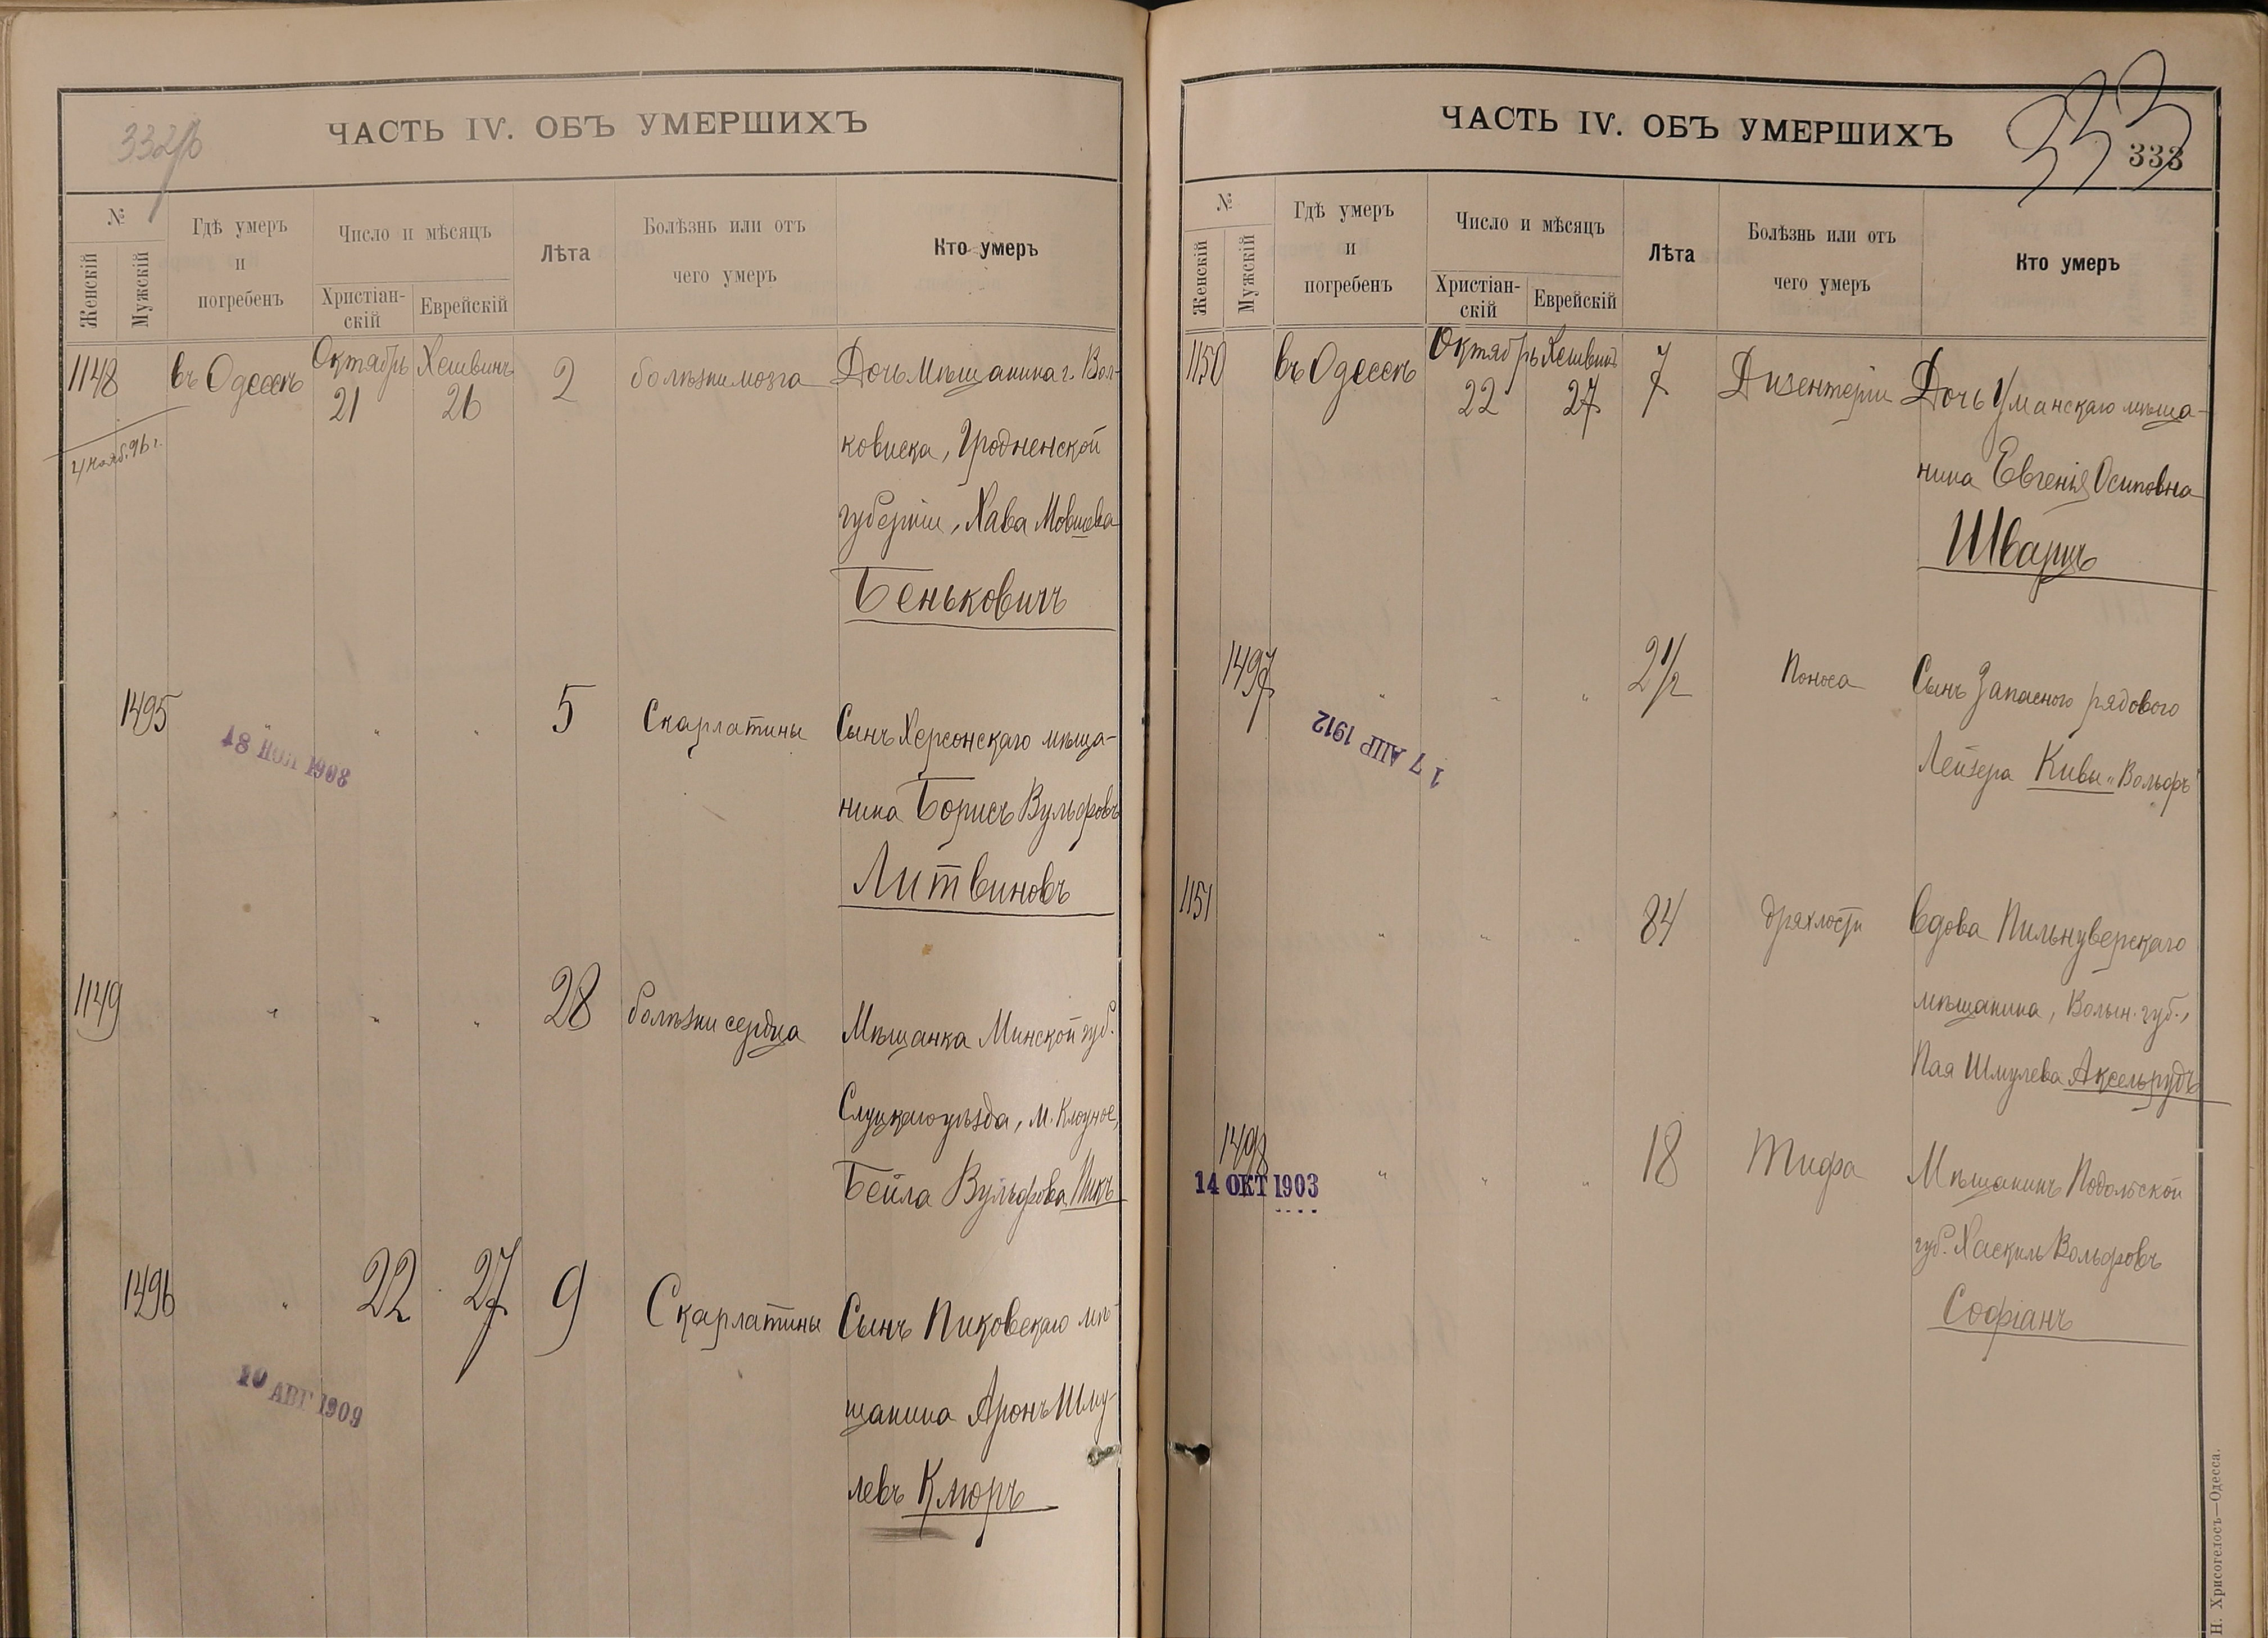 332/б
ЧАСТЬ IV. ОБЪ УМЕРШИХЪ
№
Женскій
Мужскій
Гдѣ умеръ
и
погребенъ
Число и мѣсяцъ
Христіан-
скій
Еврейскій
Лѣта
Болѣзнь или отъ
чего умеръ
Кто умеръ
1148 въ Одессѣ Октябрь 21 Хешвинъ 26 2 болѣзни мозга Дочь мѣщанина г. Вол-
ковиска, Гродненской
губерніи, Хава Мовшева
Беньковичъ
1495 " " " 5 Скарлатины Сынъ Херсонскаго мѣща-
18 НОЯ 1908
нина Борисъ Вульфовъ
Литвиновъ
1149 " " " 28 болѣзни сердца Мѣщанка Минской губ.
Слуцкаго уѣзда, м.
Бейла Вульфова Пикъ
1496 " 22 27 9 Скарлатины Сынъ Пиковскаго мѣ-
10 АВГ 1909
щанина Аронъ Шму-
левъ Клюръ
ЧАСТЬ IV. ОБЪ УМЕРШИХЪ
333
333
№
Женскій
Мужскій
Гдѣ умеръ
и
погребенъ
Число и мѣсяцъ
Христіан-
скій
Еврейскій
Лѣта
Болѣзнь или отъ
чего умеръ
Кто умеръ
1150 въ Одессѣ Октябрь 22 Хешвинъ 27 7 Дизентеріи Дочь Уманскаго мѣща-
нина Евгенія Осиповна
Шварцъ
1497 " " " 2 1/2 Поноса Сынъ Запасного рядового
17 АПР 1912
Лейзера Кивы "Вольфъ"
1151 " " " 84 дряхлости Вдова Пильнуверскаго
мѣщанина, Волын. губ.,
Пая Шмулева Аксельрудъ
1498 " " " 18 Тифа Мѣщанинъ Подольской
14 ОКТ 1903
губ. Хаскиль Вольфовъ
Софіанъ
Н. Хрисогелосъ—Одесса.